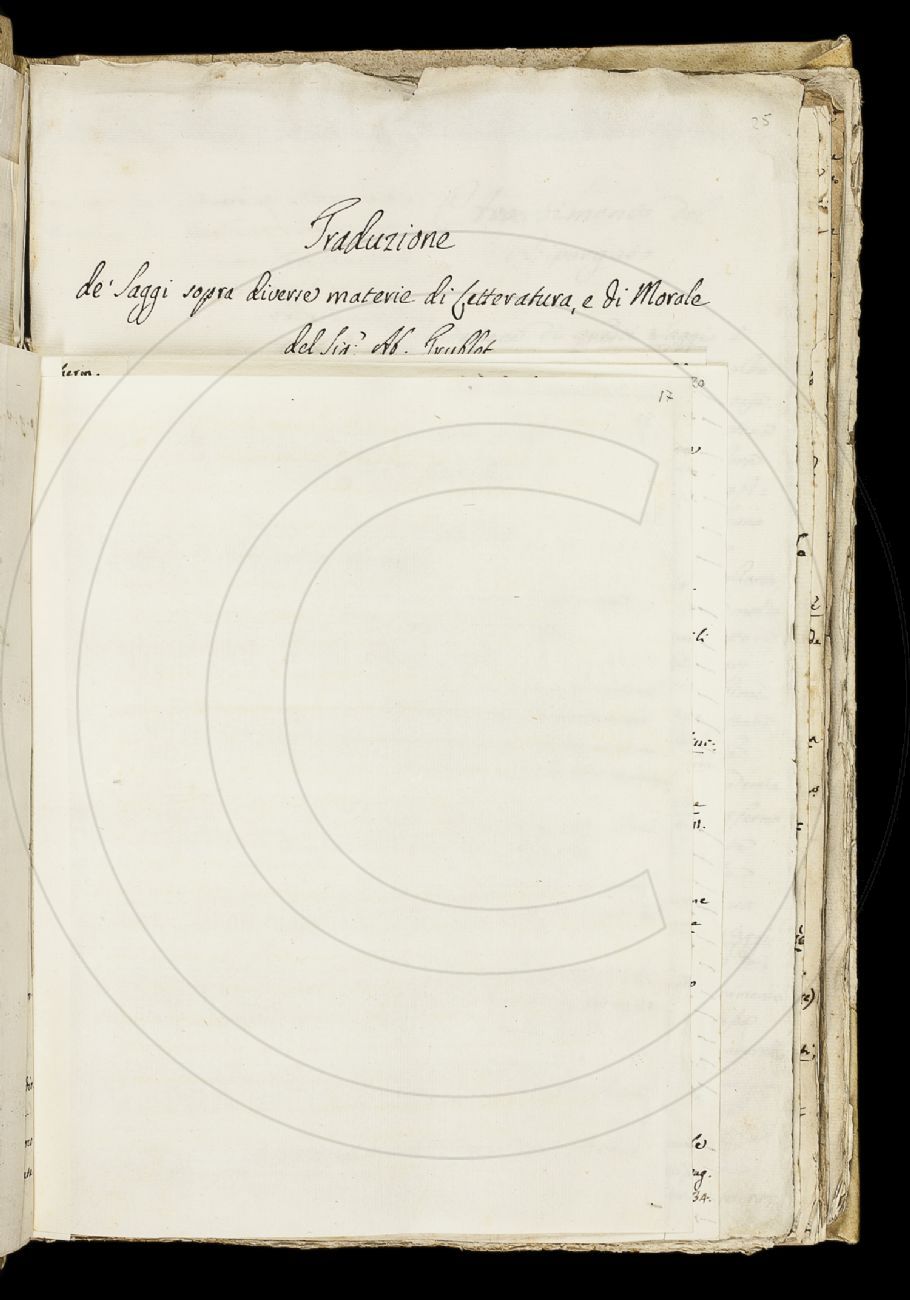 25
Traduzione
de' Saggi sopra diverse materie di Letteratura, e di Morale
del Sig.r Ab. Trublet
20
17
li
ne
ag.
34.